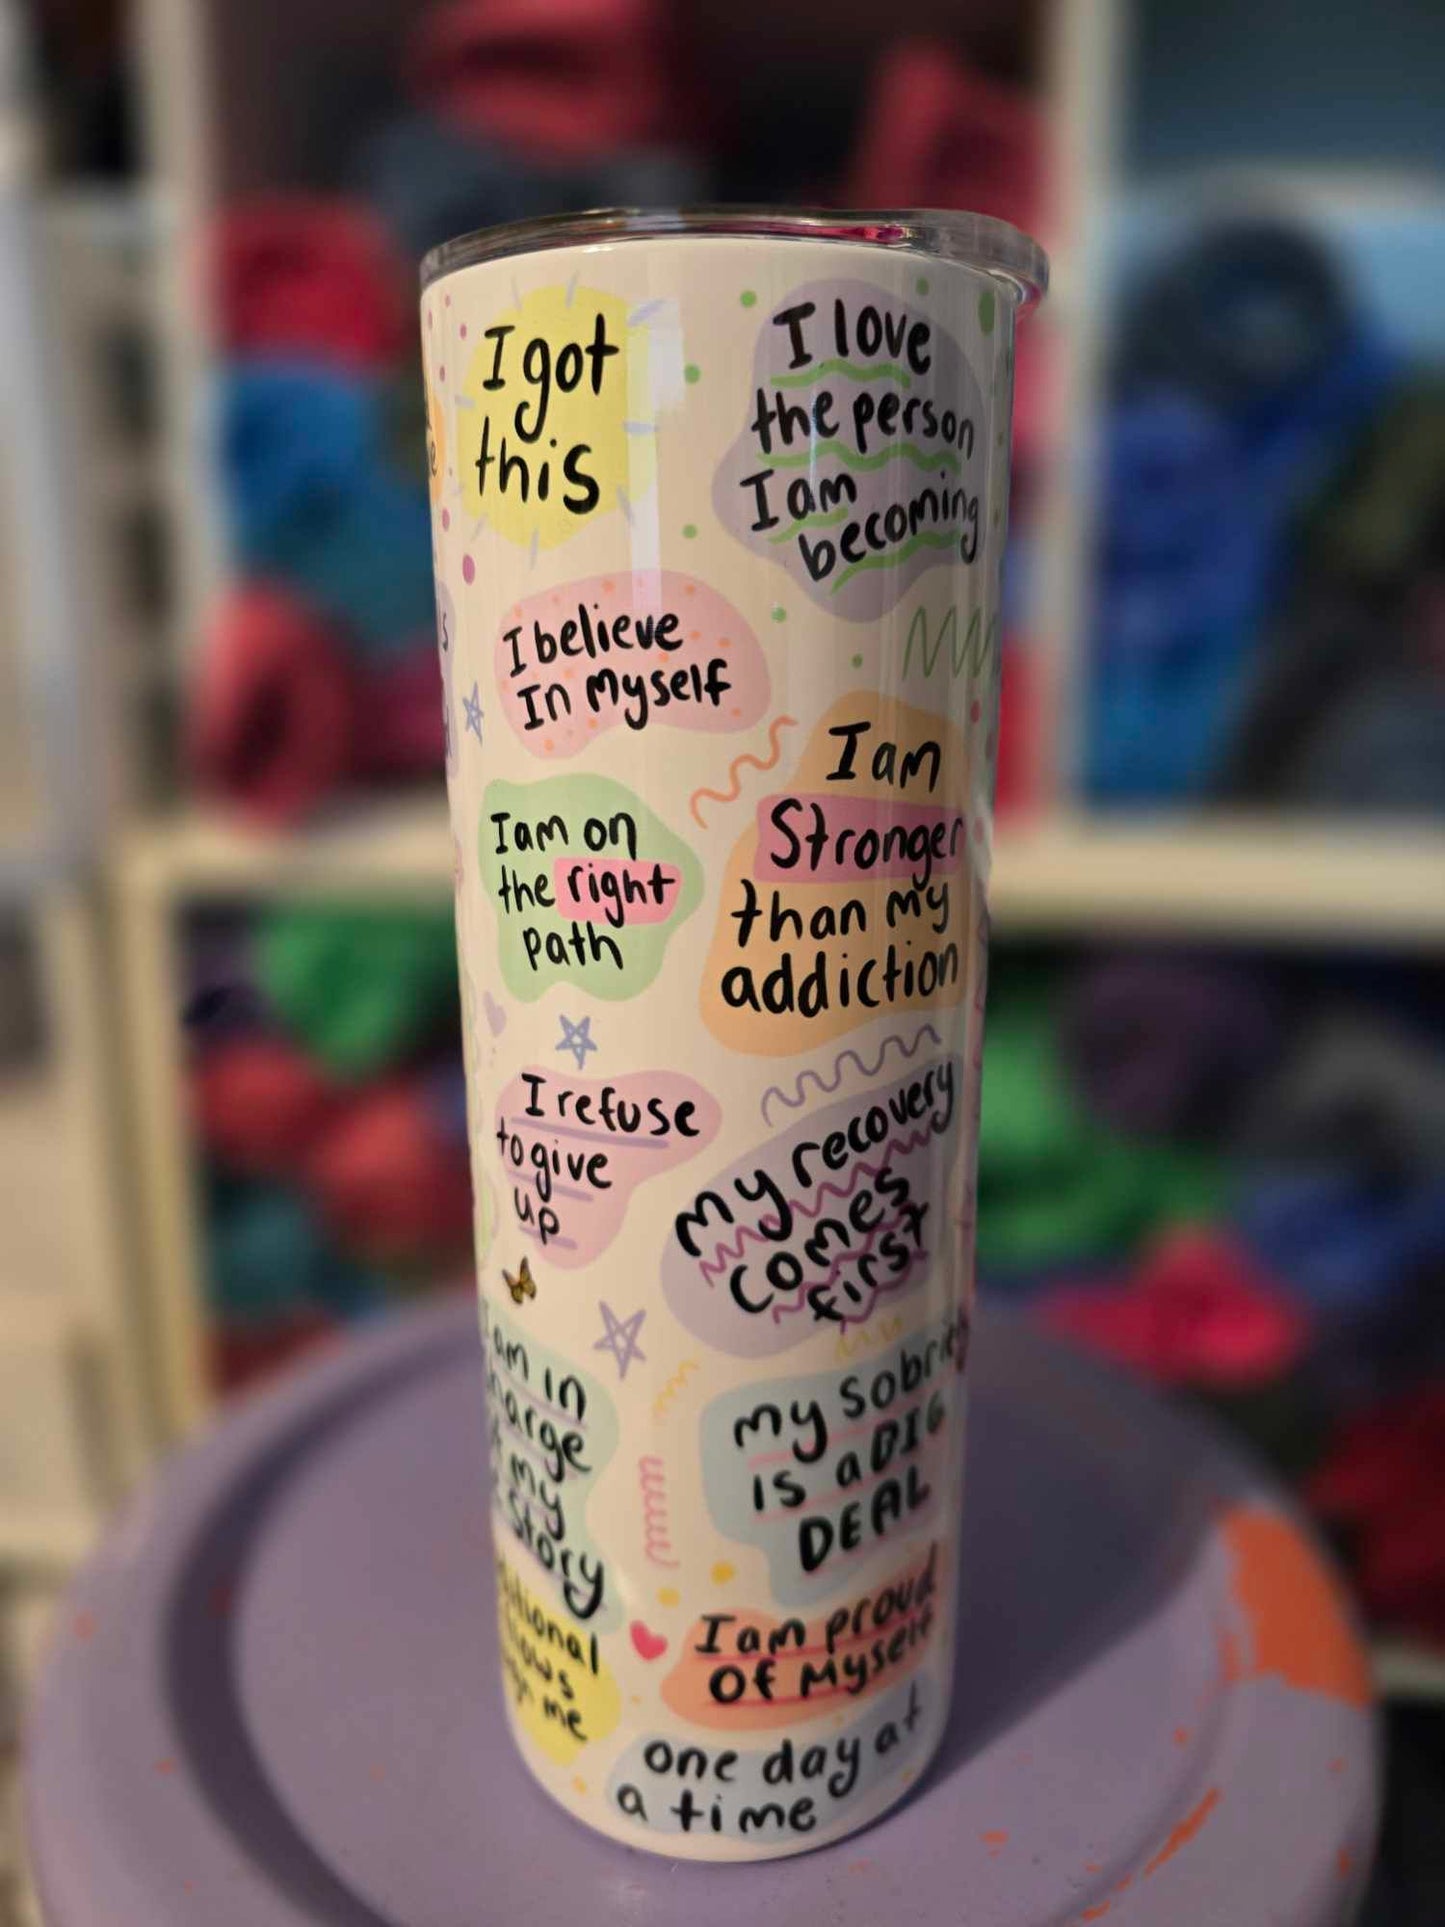 I got
this
I love
the person
I am
becoming
I believe
In Myself
I am on
the right
path
I am
Stronger
than my
addiction
I refuse
to give
up
my recovery
comes
first
am in
charge
my
Story
my sobriety
is a BIG
DEAL
me
I am proud
Of Myself
one day at
a time